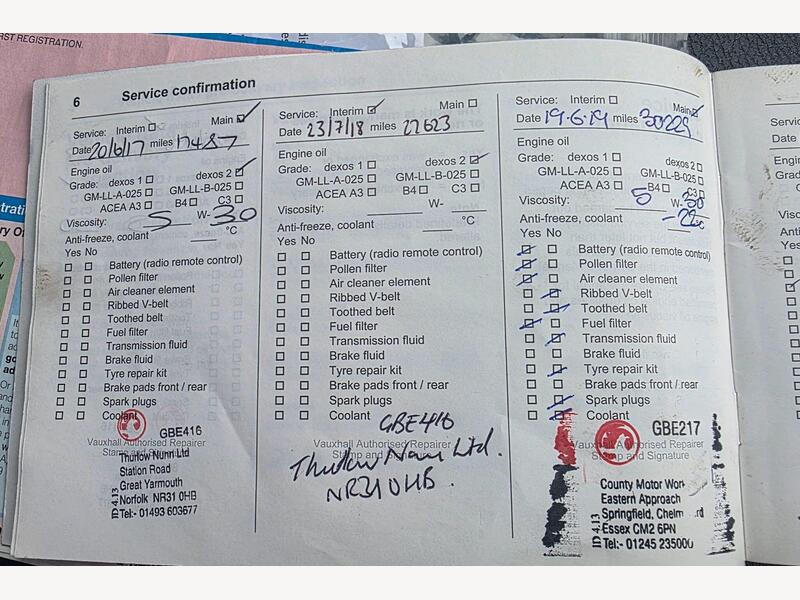 RST REGISTRATION.
6 Service confirmation
Service: Interim Main
Date 20/6/17 miles 17487
Engine oil
Grade: dexos 1 dexos 2
GM-LL-A-025 GM-LL-B-025
ACEA A3 B4 C3
Viscosity: 5 W- 30
Anti-freeze, coolant °C
Yes No
Battery (radio remote control)
Pollen filter
Air cleaner element
Ribbed V-belt
Toothed belt
Fuel filter
Transmission fluid
Brake fluid
Tyre repair kit
Brake pads front / rear
Spark plugs
Coolant
GBE416
Vauxhall Authorised Repairer
Stamp and Signature
Thurlow Nunn Ltd
Station Road
Great Yarmouth
Norfolk NR31 0HB
Tel:- 01493 603677
ID 4.13
Service: Interim Main
Date 23/7/18 miles 27623
Engine oil
Grade: dexos 1 dexos 2
GM-LL-A-025 GM-LL-B-025
ACEA A3 B4 C3
Viscosity: W-
Anti-freeze, coolant °C
Yes No
Battery (radio remote control)
Pollen filter
Air cleaner element
Ribbed V-belt
Toothed belt
Fuel filter
Transmission fluid
Brake fluid
Tyre repair kit
Brake pads front / rear
Spark plugs
Coolant
GBE416
Vauxhall Authorised Repairer
Stamp and Signature
Thurlow Nunn Ltd.
NR31 0HB.
Service: Interim Main
Date 19.6.19 miles 30229
Engine oil
Grade: dexos 1 dexos 2
GM-LL-A-025 GM-LL-B-025
ACEA A3 B4 C3
Viscosity: 5 W- 30
Anti-freeze, coolant
Yes No
Battery (radio remote control)
Pollen filter
Air cleaner element
Ribbed V-belt
Toothed belt
Fuel filter
Transmission fluid
Brake fluid
Tyre repair kit
Brake pads front / rear
Spark plugs
Coolant
GBE217
Vauxhall Authorised Repairer
Stamp and Signature
County Motor Wor
Eastern Approach
Springfield, Chelm rd
Essex CM2 6PN
Tel:- 01245 235000
ID 4.13
Service
Date
Engine
Grade: